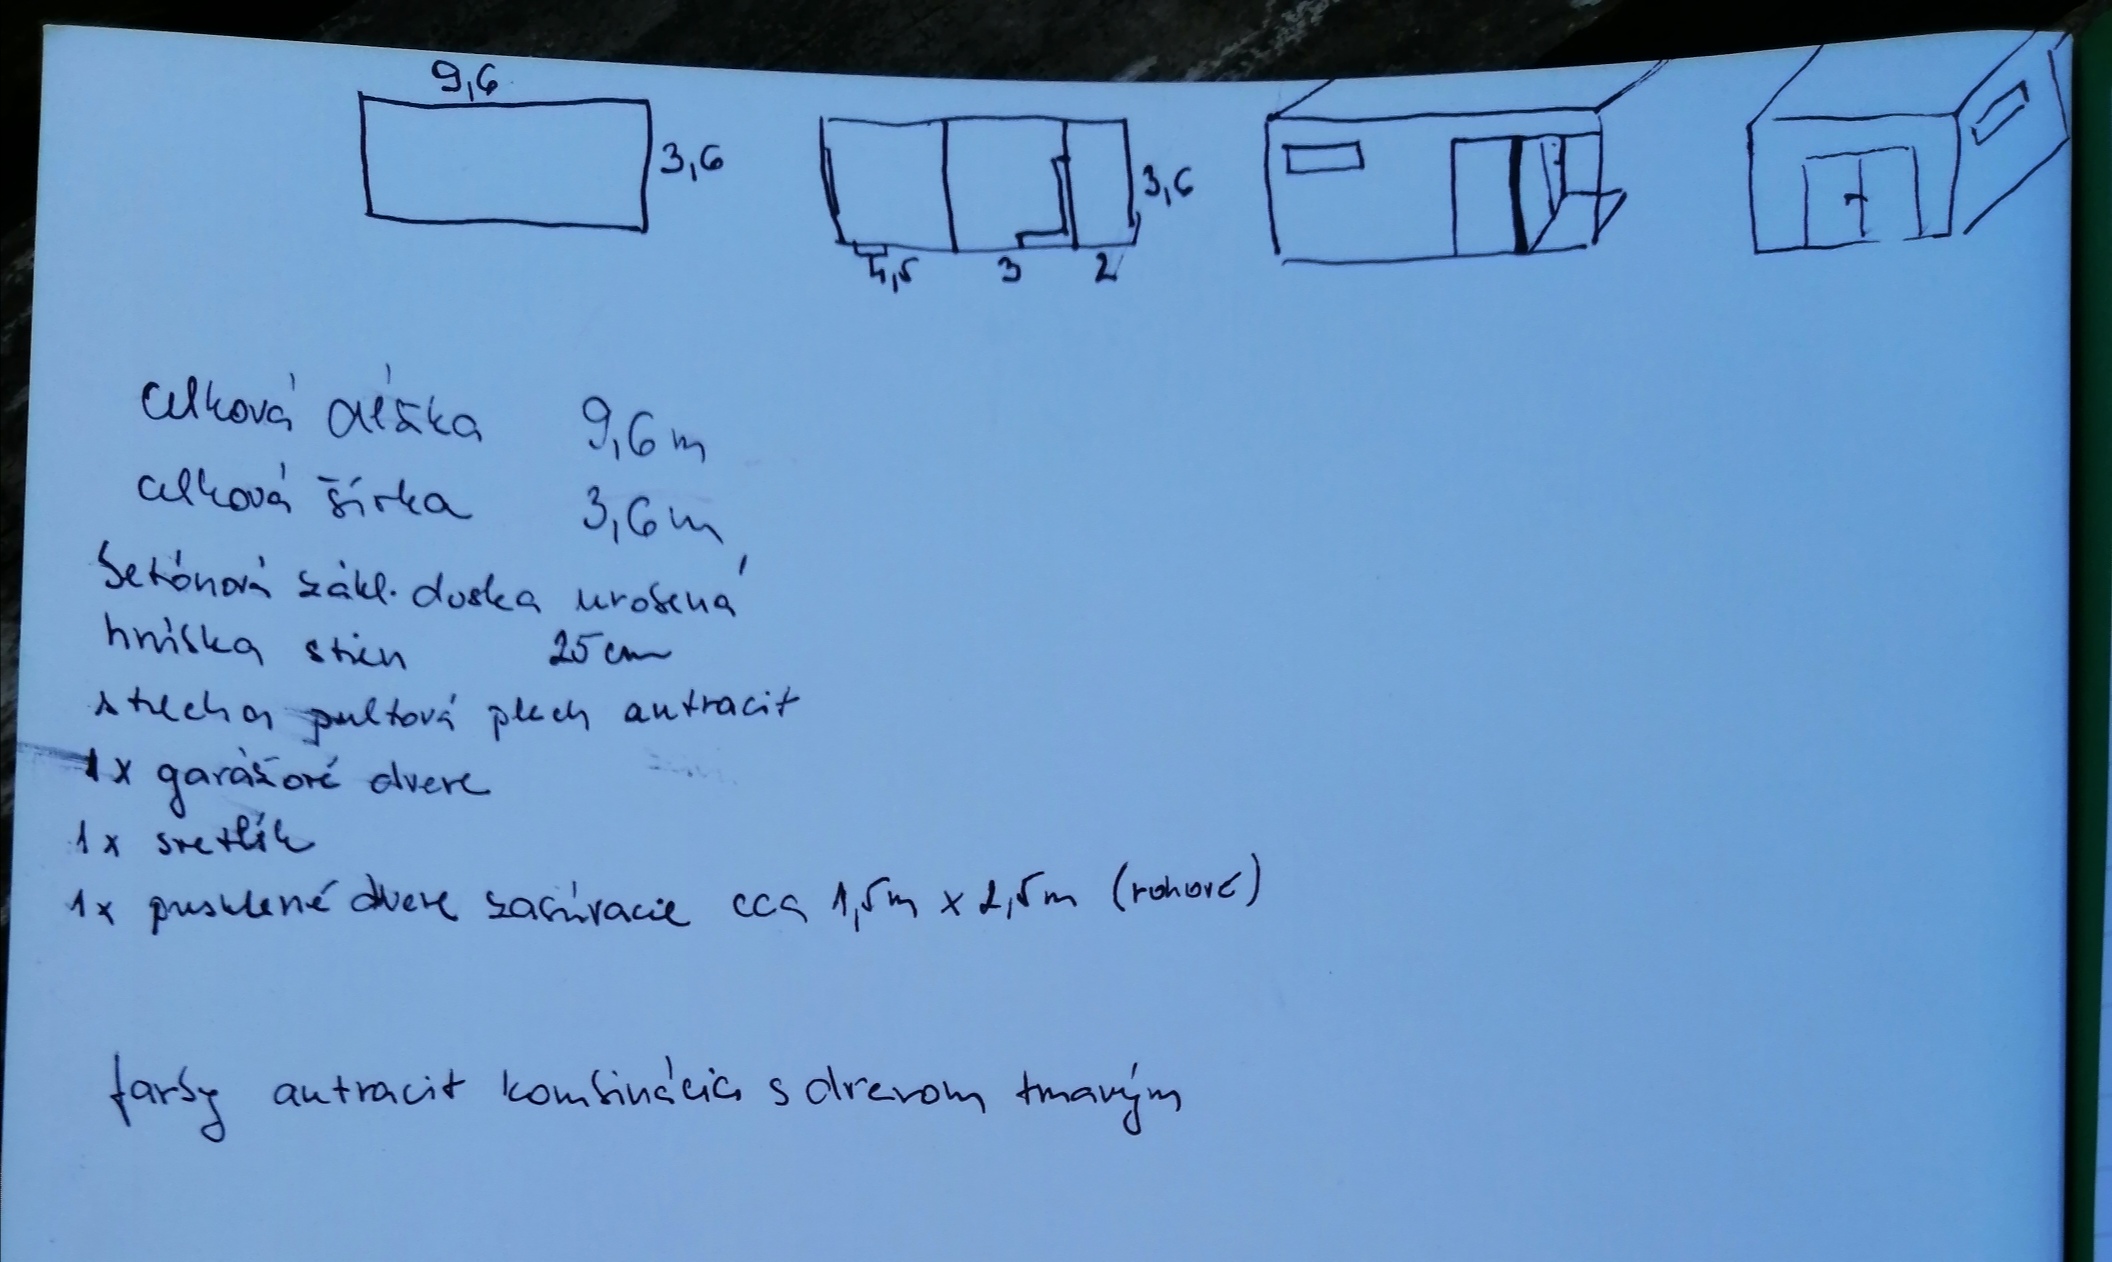 9,6
3,6
3,6
4,5 3 2
celková dĺžka 9,6 m
celková šírka 3,6 m
betónová zákl. doska urobená
hrúbka stien 25 cm
strecha pultová plech antracit
1x garážové dvere
1x svetlík
1x presklené dvere zasúvacie cca 1,5m x 2,5m (rohové)
farby antracit kombinácia s drevom tmavým